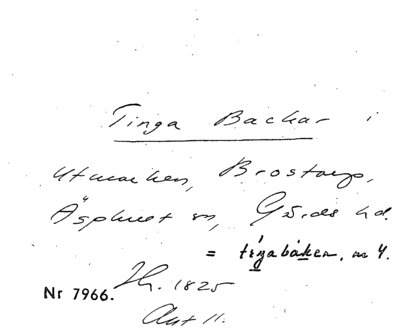 Tinga Backar i
Utmarken, Brostorp,
Äsphult sn, Gärds hd.
= tiŋabákca, m 4.
Nr 7966. Th. 1825
Akt 11.